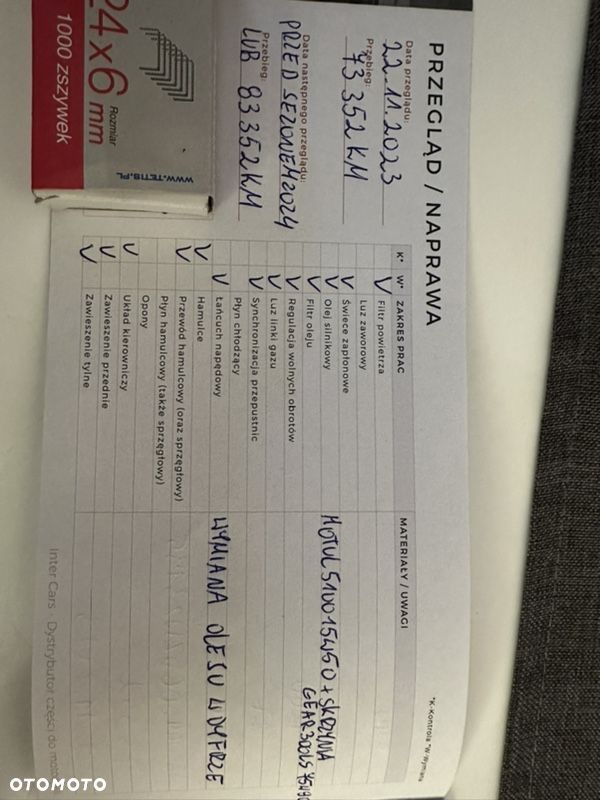 PRZEGLĄD / NAPRAWA
Data przeglądu:
22.11.2023
Przebieg:
73 352 KM
Data następnego przeglądu:
PRZED SEZONEM 2024
Przebieg:
LUB 83352KM
K* W* ZAKRES PRAC MATERIAŁY / UWAGI
Filtr powietrza
Luz zaworowy
Świece zapłonowe
Olej silnikowy MOTUL 5100 15W50 + SKRZYNIA
Filtr oleju GEAR 300LS 75W90
Regulacja wolnych obrotów
Luz linki gazu
Synchronizacja przepustnic
Płyn chłodzący
Łańcuch napędowy WYMIANA OLEJU W DYFRZE
Hamulce
Przewód hamulcowy (oraz sprzęgłowy)
Płyn hamulcowy (także sprzęgłowy)
Opony
Układ kierowniczy
Zawieszenie przednie
Zawieszenie tylne
*K-Kontrola *W-Wymiana
Inter Cars · Dystrybutor części do
24 x 6 mm
Rozmiar
1000 zszywek
WWW.TETIS.PL
OTOMOTO